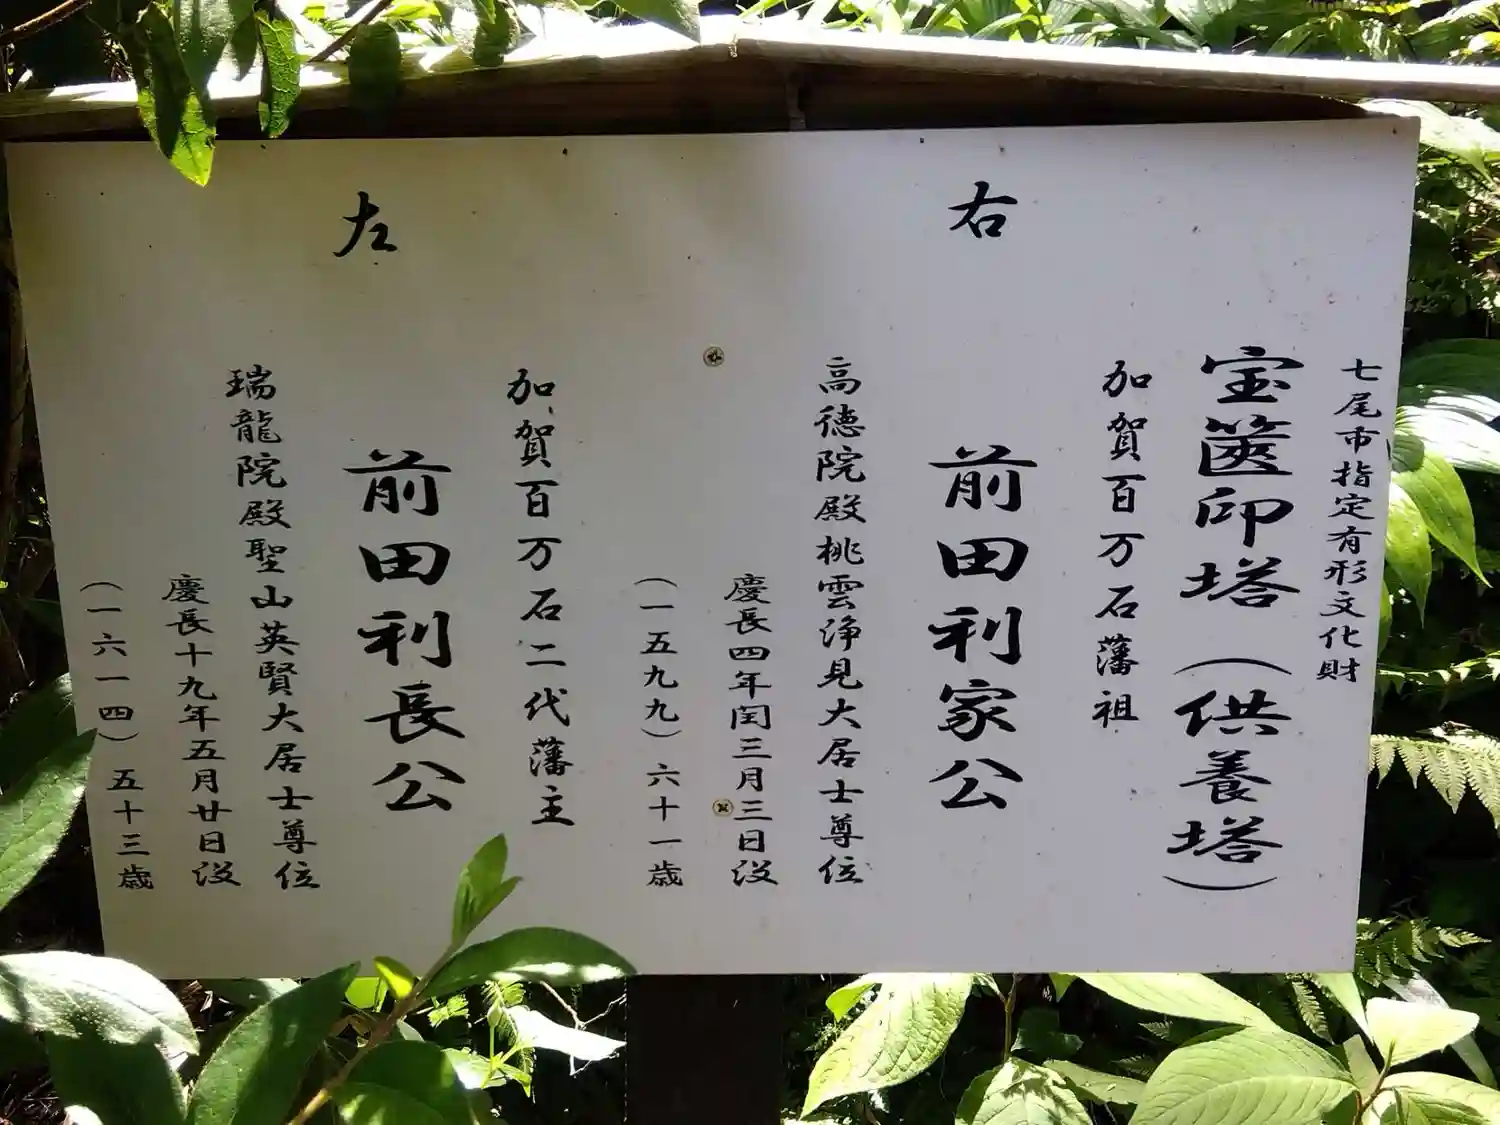 七尾市指定有形文化財
宝篋印塔（供養塔）
右
加賀百万石藩祖
前田利家公
高徳院殿桃雲浄見大居士尊位
慶長四年閏三月三日没
（一五九九）六十一歳
左
加賀百万石二代藩主
前田利長公
瑞龍院殿聖山英賢大居士尊位
慶長十九年五月廿日没
（一六一四）五十三歳